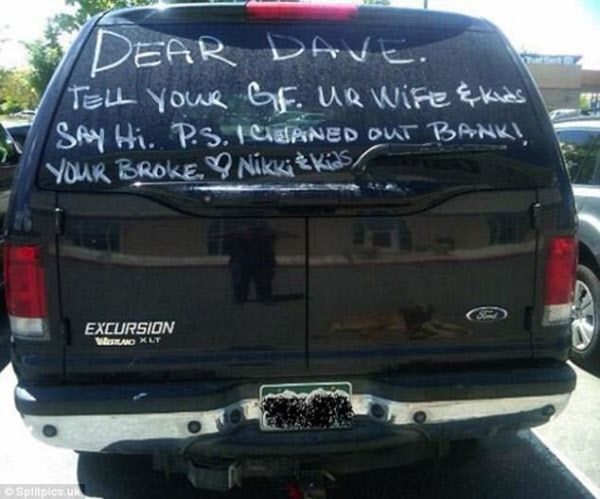 DEAR DAVE.
TELL YOUR GF. UR WIFE & KIDS
SAY Hi. P.S. I CLEANED OUT BANK!
YOUR BROKE. ♡ Nikki & KiDS
EXCURSION
XLT
Ford
© Splitpics.uk